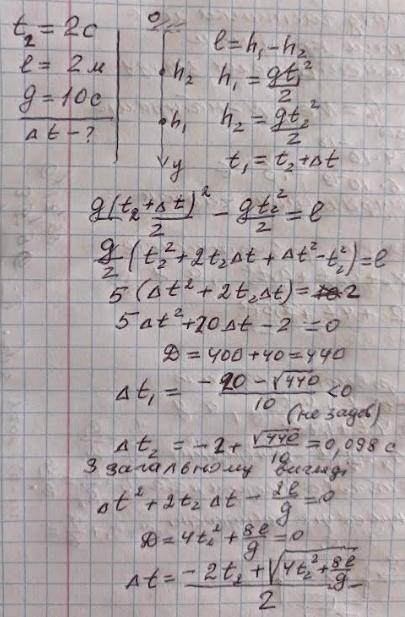 t₂ = 2с
l = 2м
g = 10с
Δt - ?
0
h₂
h₁
y
l = h₁ - h₂
h₁ = gt₁²/2
h₂ = gt₂²/2
t₁ = t₂ + Δt
g(t₂ + Δt)²/2 - gt₂²/2 = l
g/2 (t₂² + 2t₂Δt + Δt² - t₂²) = l
5 (Δt² + 2t₂Δt) = 2
5Δt² + 20Δt - 2 = 0
D = 400 + 40 = 440
Δt₁ = (-20 - √440)/10 < 0
(не задов)
Δt₂ = -2 + √440/10 = 0,098 с
З загальному вигляді
Δt² + 2t₂Δt - 2l/g = 0
D = 4t₂² + 8l/g = 0
Δt = (-2t₂ + √(4t₂² + 8l/g))/2